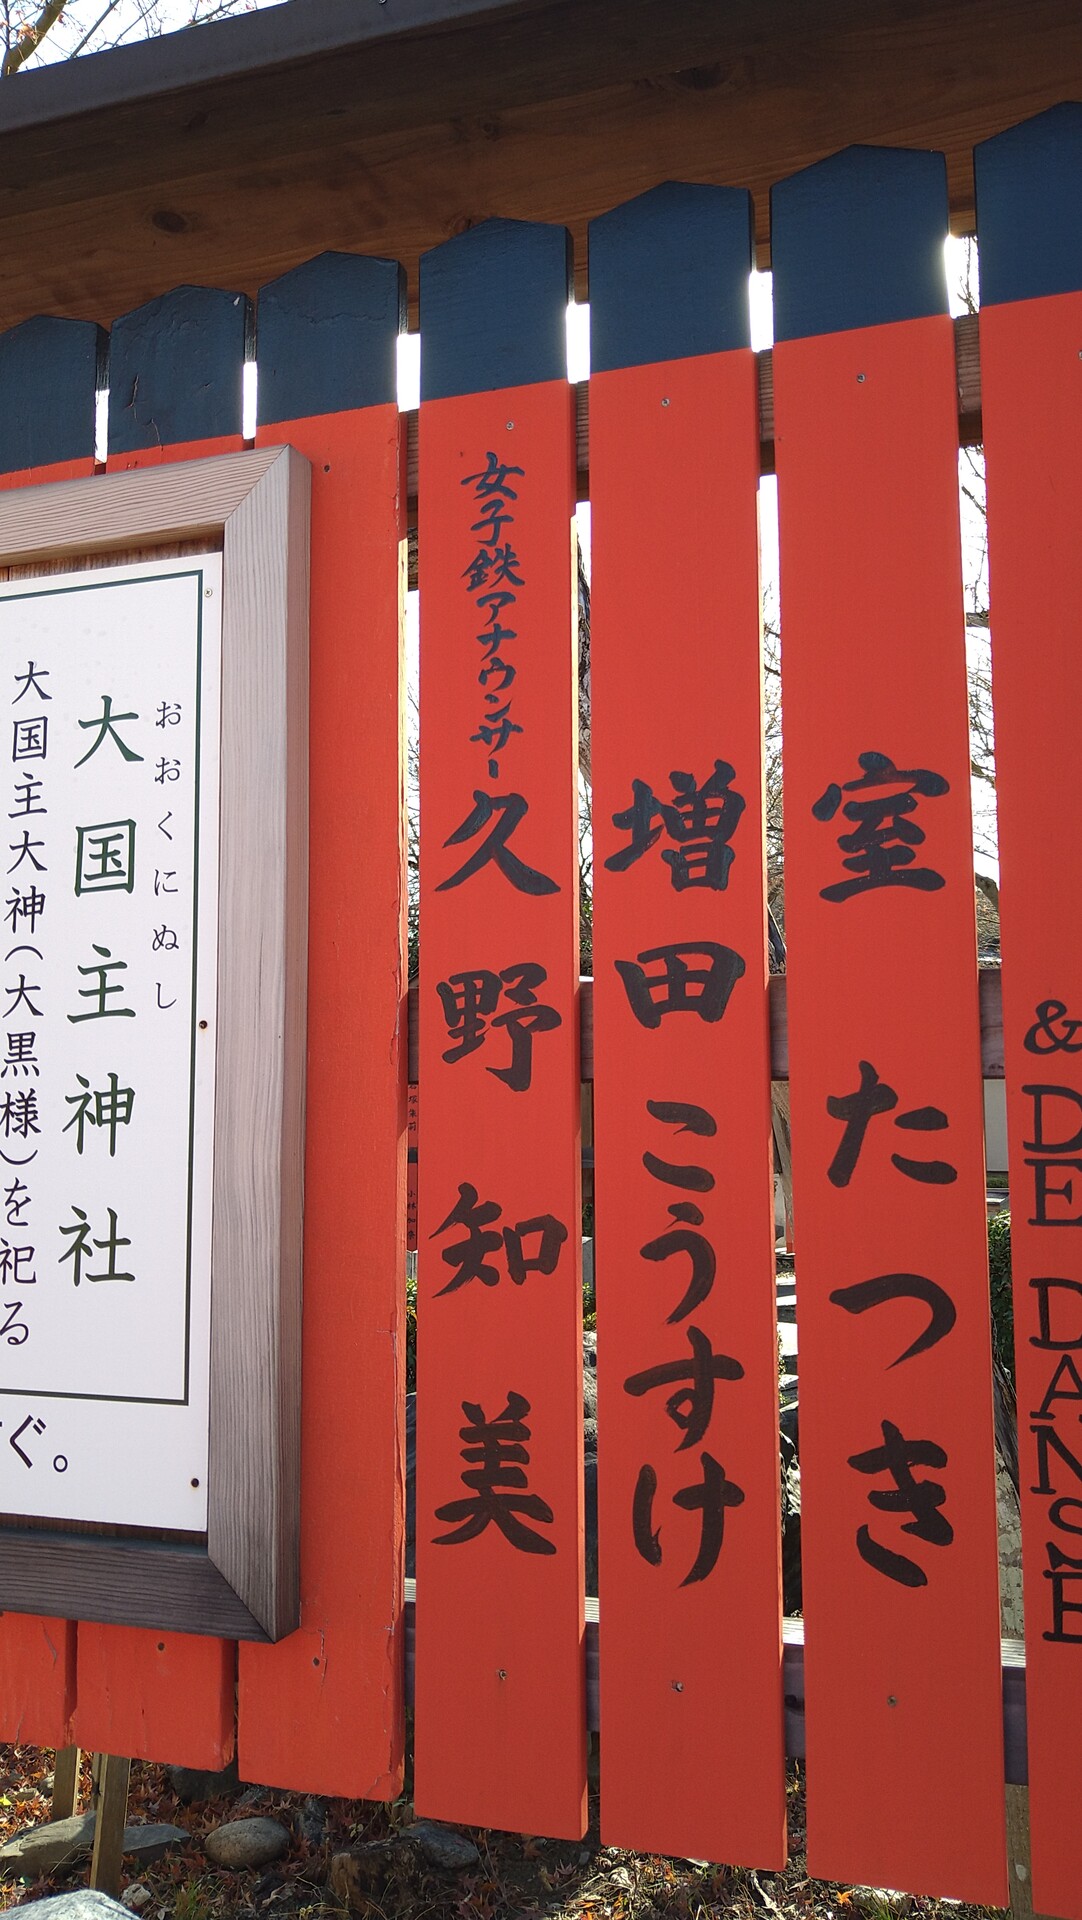 & DE DANSE
室たつき
増田こうすけ
女子鉄アナウンサー
久野知美
おおくにぬし
大国主神社
大国主大神(大黒様)を祀る
ぐ。